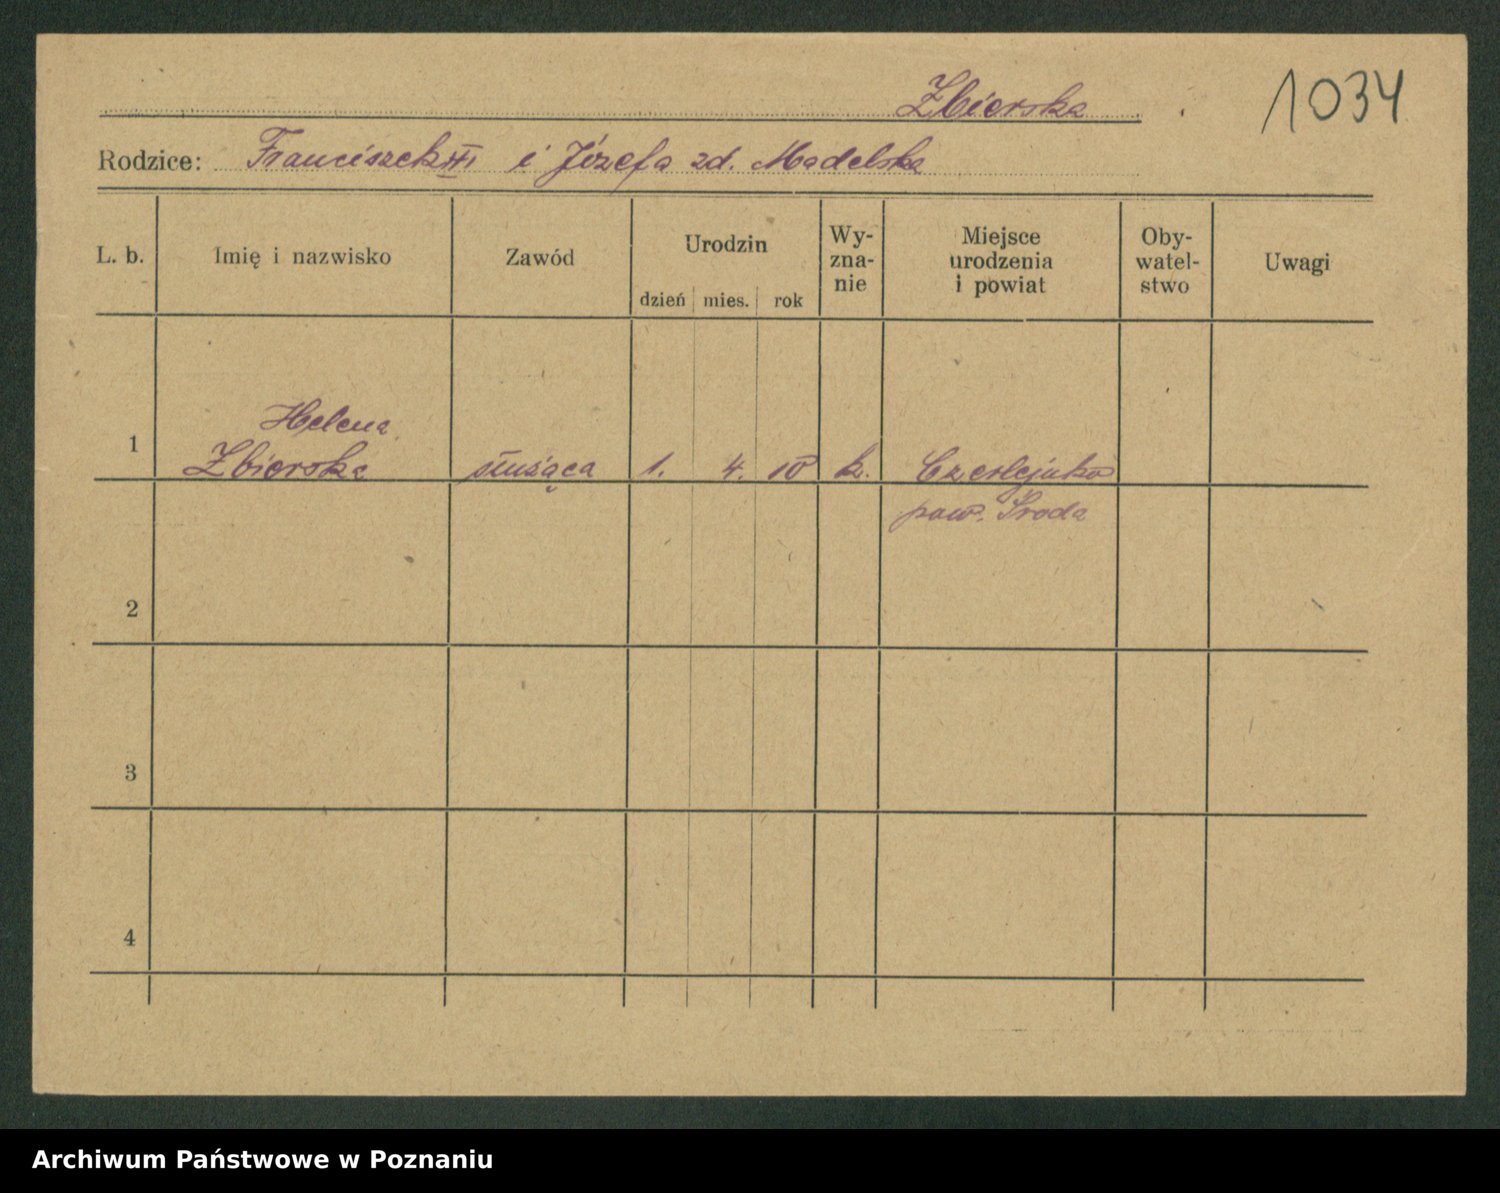 Zbierska
1034
Rodzice: Franciszek i Józefa zd. Madelska
L. b. Imię i nazwisko Zawód Urodzin dzień mies. rok Wy-zna-nie Miejsce urodzenia i powiat Oby-watel-stwo Uwagi
Helena
1 Zbierska służąca 1. 4. 10 k. Czerlejnko
pow. Środa
2
3
4
Archiwum Państwowe w Poznaniu